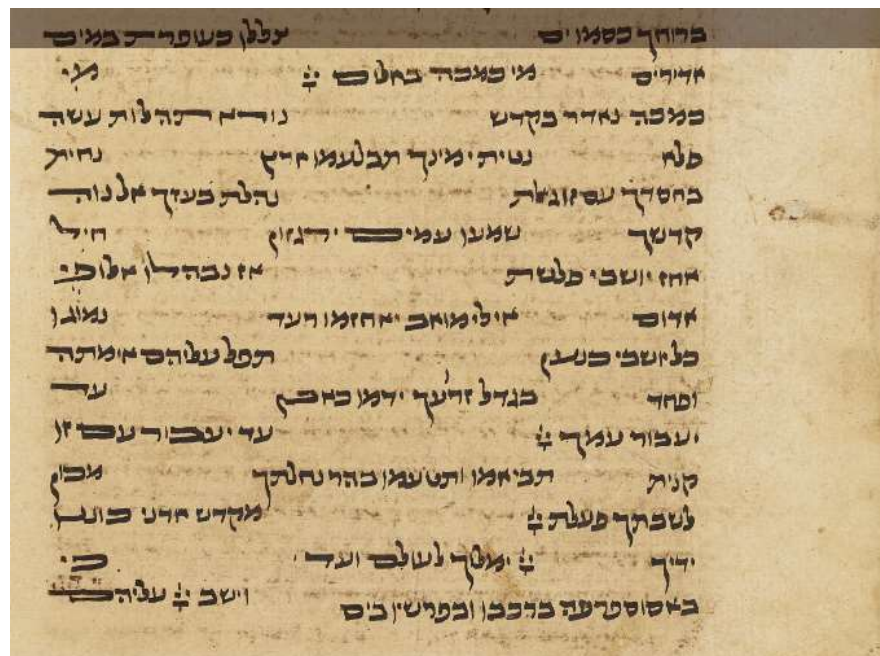 ברוחך כסמו ים צללו כעופרת במים
אדירים מי כמכה באלים ÷ מי
כמכה נאדר בקדש נורא תהלות עשה
פלא נטית ימינך תבלעמו ארץ נחית
בחסדך עם זו גאלת נהלת בעזך אל נוה
קדשך שמעו עמים ירגזון חיל
אחז יושבי פלשת אז נבהלו אלופי
אדום אילי מואב יאחזמו רעד נמוגו
כל יושבי כנען תפל עליהם אימתה
ופחד בגדל זרועך ידמו כאבן עד
יעבור עמך ÷ עד יעבור עם זו
קנית תביאמו ותטעמו בהר נחלתך מכון
לשבתך פעלת ÷ מקדש אדני כוננו
ידיך ÷ ימלך לעולם ועד כי
בא סוס פרעה ברכבו ובפרשיו בים וישב ÷ עליהם